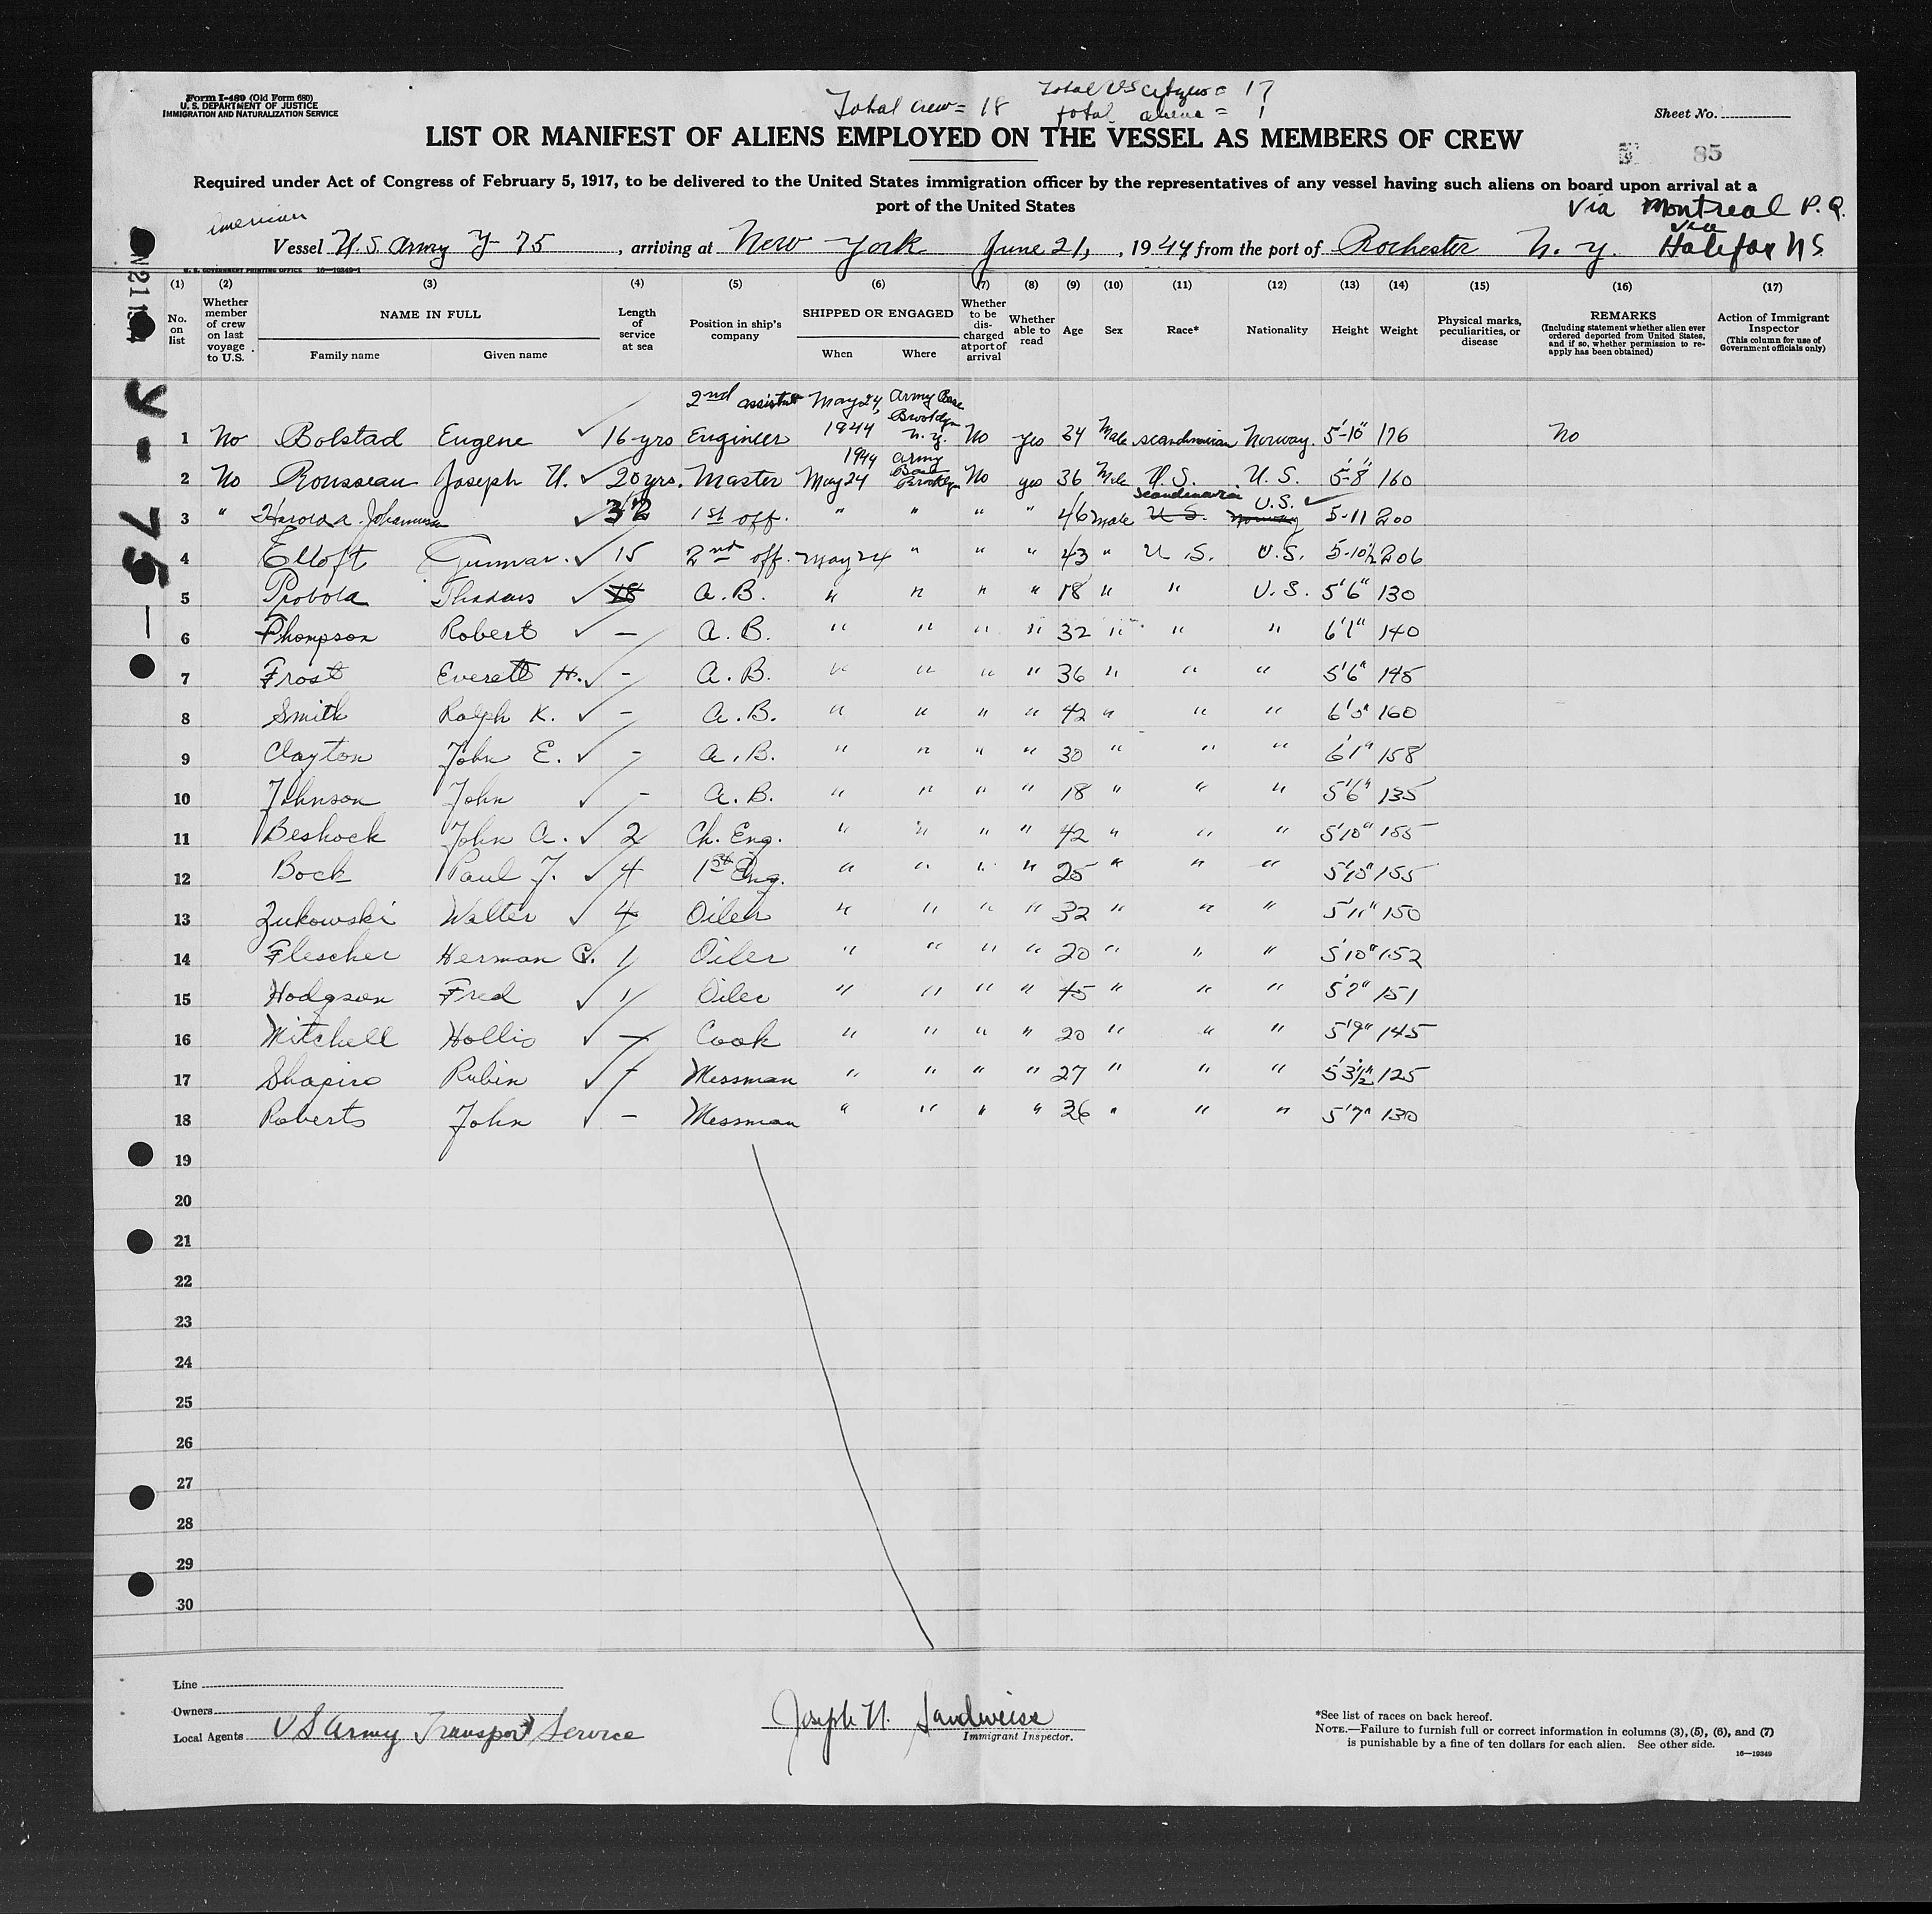 Form I-489 (Old Form 680)
U. S. DEPARTMENT OF JUSTICE
IMMIGRATION AND NATURALIZATION SERVICE
Total crew = 18
Total US citizens = 17
total aliens = 1
Sheet No.
LIST OR MANIFEST OF ALIENS EMPLOYED ON THE VESSEL AS MEMBERS OF CREW
85
Required under Act of Congress of February 5, 1917, to be delivered to the United States immigration officer by the representatives of any vessel having such aliens on board upon arrival at a
port of the United States
Via Montreal P. Q.
via
American
Vessel U. S. Army Y-75, arriving at New York June 21, 1944 from the port of Rochester N. Y. Halifax NS
U. S. GOVERNMENT PRINTING OFFICE 16—19349-1
(1) (2) (3) (4) (5) (6) (7) (8) (9) (10) (11) (12) (13) (14) (15) (16) (17)
No. on list
Whether member of crew on last voyage to U.S.
NAME IN FULL
Family name Given name
Length of service at sea
Position in ship's company
SHIPPED OR ENGAGED
When Where
Whether to be discharged at port of arrival
Whether able to read
Age Sex Race* Nationality Height Weight
Physical marks, peculiarities, or disease
REMARKS
(Including statement whether alien ever ordered deported from United States, and if so, whether permission to reapply has been obtained)
Action of Immigrant Inspector
(This column for use of Government officials only)
2nd assistant May 24, Army Base Brooklyn
1 No Bolstad Eugene ✓ 16-yrs Engineer 1944 N.Y. No yes 34 Male Scandinavian Norway. 5'-10" 176 No
1944 Army Base
2 No Rousseau Joseph U. ✓ 20 yrs. Master May 24 Brooklyn No yes 36 Male U. S. U. S. 5-8" 160
Scandinavian U.S. ✓
3 " Harold A. Johannsen ✓ 32 1st off. " " " " 46 Male U S. Norway 5-11 200
4 Elloft Gunnar. ✓ 15 2nd off. May 24 " " " 43 " U. S. U.S. 5-10½ 206
5 Probola Thadeus ✓ 18 A.B. " " " " 18 " " U.S. 5'6" 130
6 Thompson Robert ✓ — A.B. " " " " 32 " " " 6'1" 140
7 Frost Everett H. ✓ - A.B. " " " " 36 " " " 5'6" 145
8 Smith Ralph K. ✓ - A.B. " " " " 42 " " " 6'0" 160
9 Clayton John E. ✓ - A.B. " " " " 30 " " " 6'1" 158
10 Johnson John ✓ - A.B. " " " " 18 " " " 5'6" 135
11 Beshock John A. ✓ 2 Ch. Eng. " " " " 42 " " " 5'10" 155
12 Bock Paul J. ✓ 4 1st Eng. " " " " 25 " " " 5'10" 155
13 Zukowski Walter ✓ 4 Oiler " " " " 32 " " " 5'11" 150
14 Flescher Herman C. 1 Oiler " " " " 20 " " " 5'10" 152
15 Hodgson Fred ✓ 1 Oiler " " " " 45 " " " 5'7" 151
16 Mitchell Hollis ✓ - Cook " " " " 20 " " " 5'9" 145
17 Shapiro Rubin ✓ - Messman " " " " 27 " " " 5'3½" 125
18 Roberts John ✓ - Messman " " " " 36 " " " 5'7" 130
19
20
21
22
23
24
25
26
27
28
29
30
Y-75—
Line
Owners
Local Agents US Army Transport Service
Joseph U. Sandweiss
Immigrant Inspector.
*See list of races on back hereof.
NOTE.—Failure to furnish full or correct information in columns (3), (5), (6), and (7)
is punishable by a fine of ten dollars for each alien. See other side.
16—19349